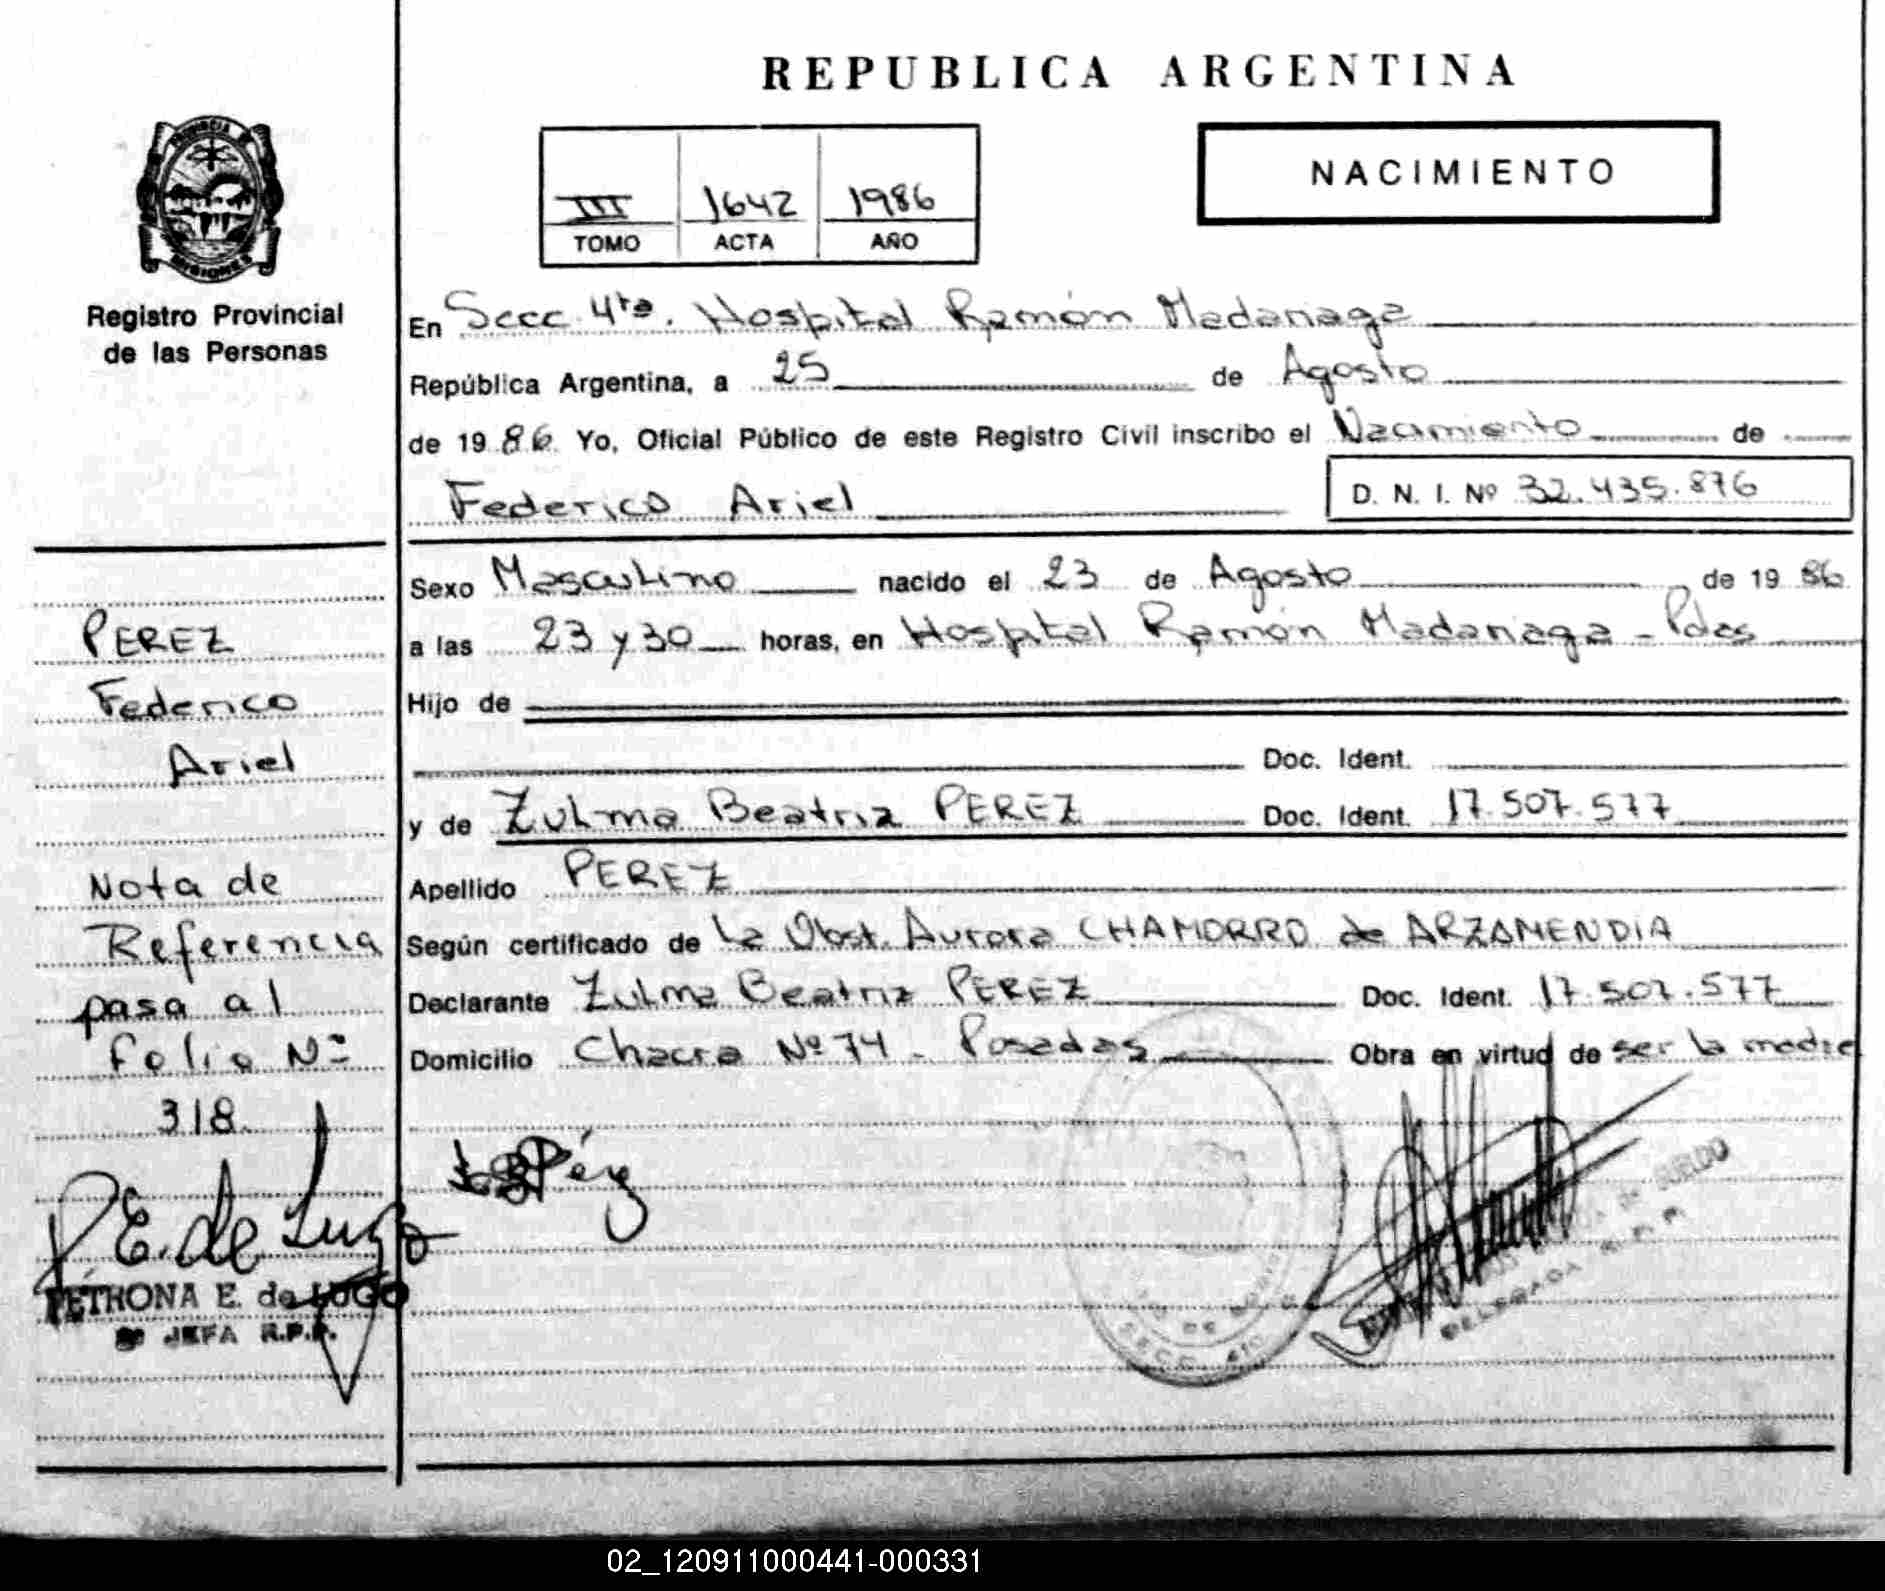 REPUBLICA ARGENTINA
PROVINCIA DE
MISIONES
Registro Provincial
de las Personas
III 1642 1986
TOMO ACTA AÑO
NACIMIENTO
En Secc 4ta. Hospital Ramón Madariaga
República Argentina, a 25 de Agosto
de 19 86 Yo, Oficial Público de este Registro Civil inscribo el Nacimiento de
Federico Ariel D. N. I. Nº 32.435.876
Sexo Masculino nacido el 23 de Agosto de 19 86
a las 23 y 30 horas, en Hospital Ramón Madariaga - Pdas
Hijo de
Doc. Ident.
y de Zulma Beatriz PEREZ Doc. Ident. 17.507.577
Apellido PEREZ
Según certificado de la Obst. Aurora CHAMORRO de ARZAMENDIA
Declarante Zulma Beatriz PEREZ Doc. Ident. 17.507.577
Domicilio Chacra Nº 74 - Posadas Obra en virtud de ser la madre
PEREZ
Federico
Ariel
Nota de
Referencia
pasa al
Folio Nº
318
P.E. de Lugo
PETRONA E. de LUGO
JEFA R.P.P.
Pérez
SECC. 4ta
DE SUELDO
DELEGADA R.P.P.
02_120911000441-000331